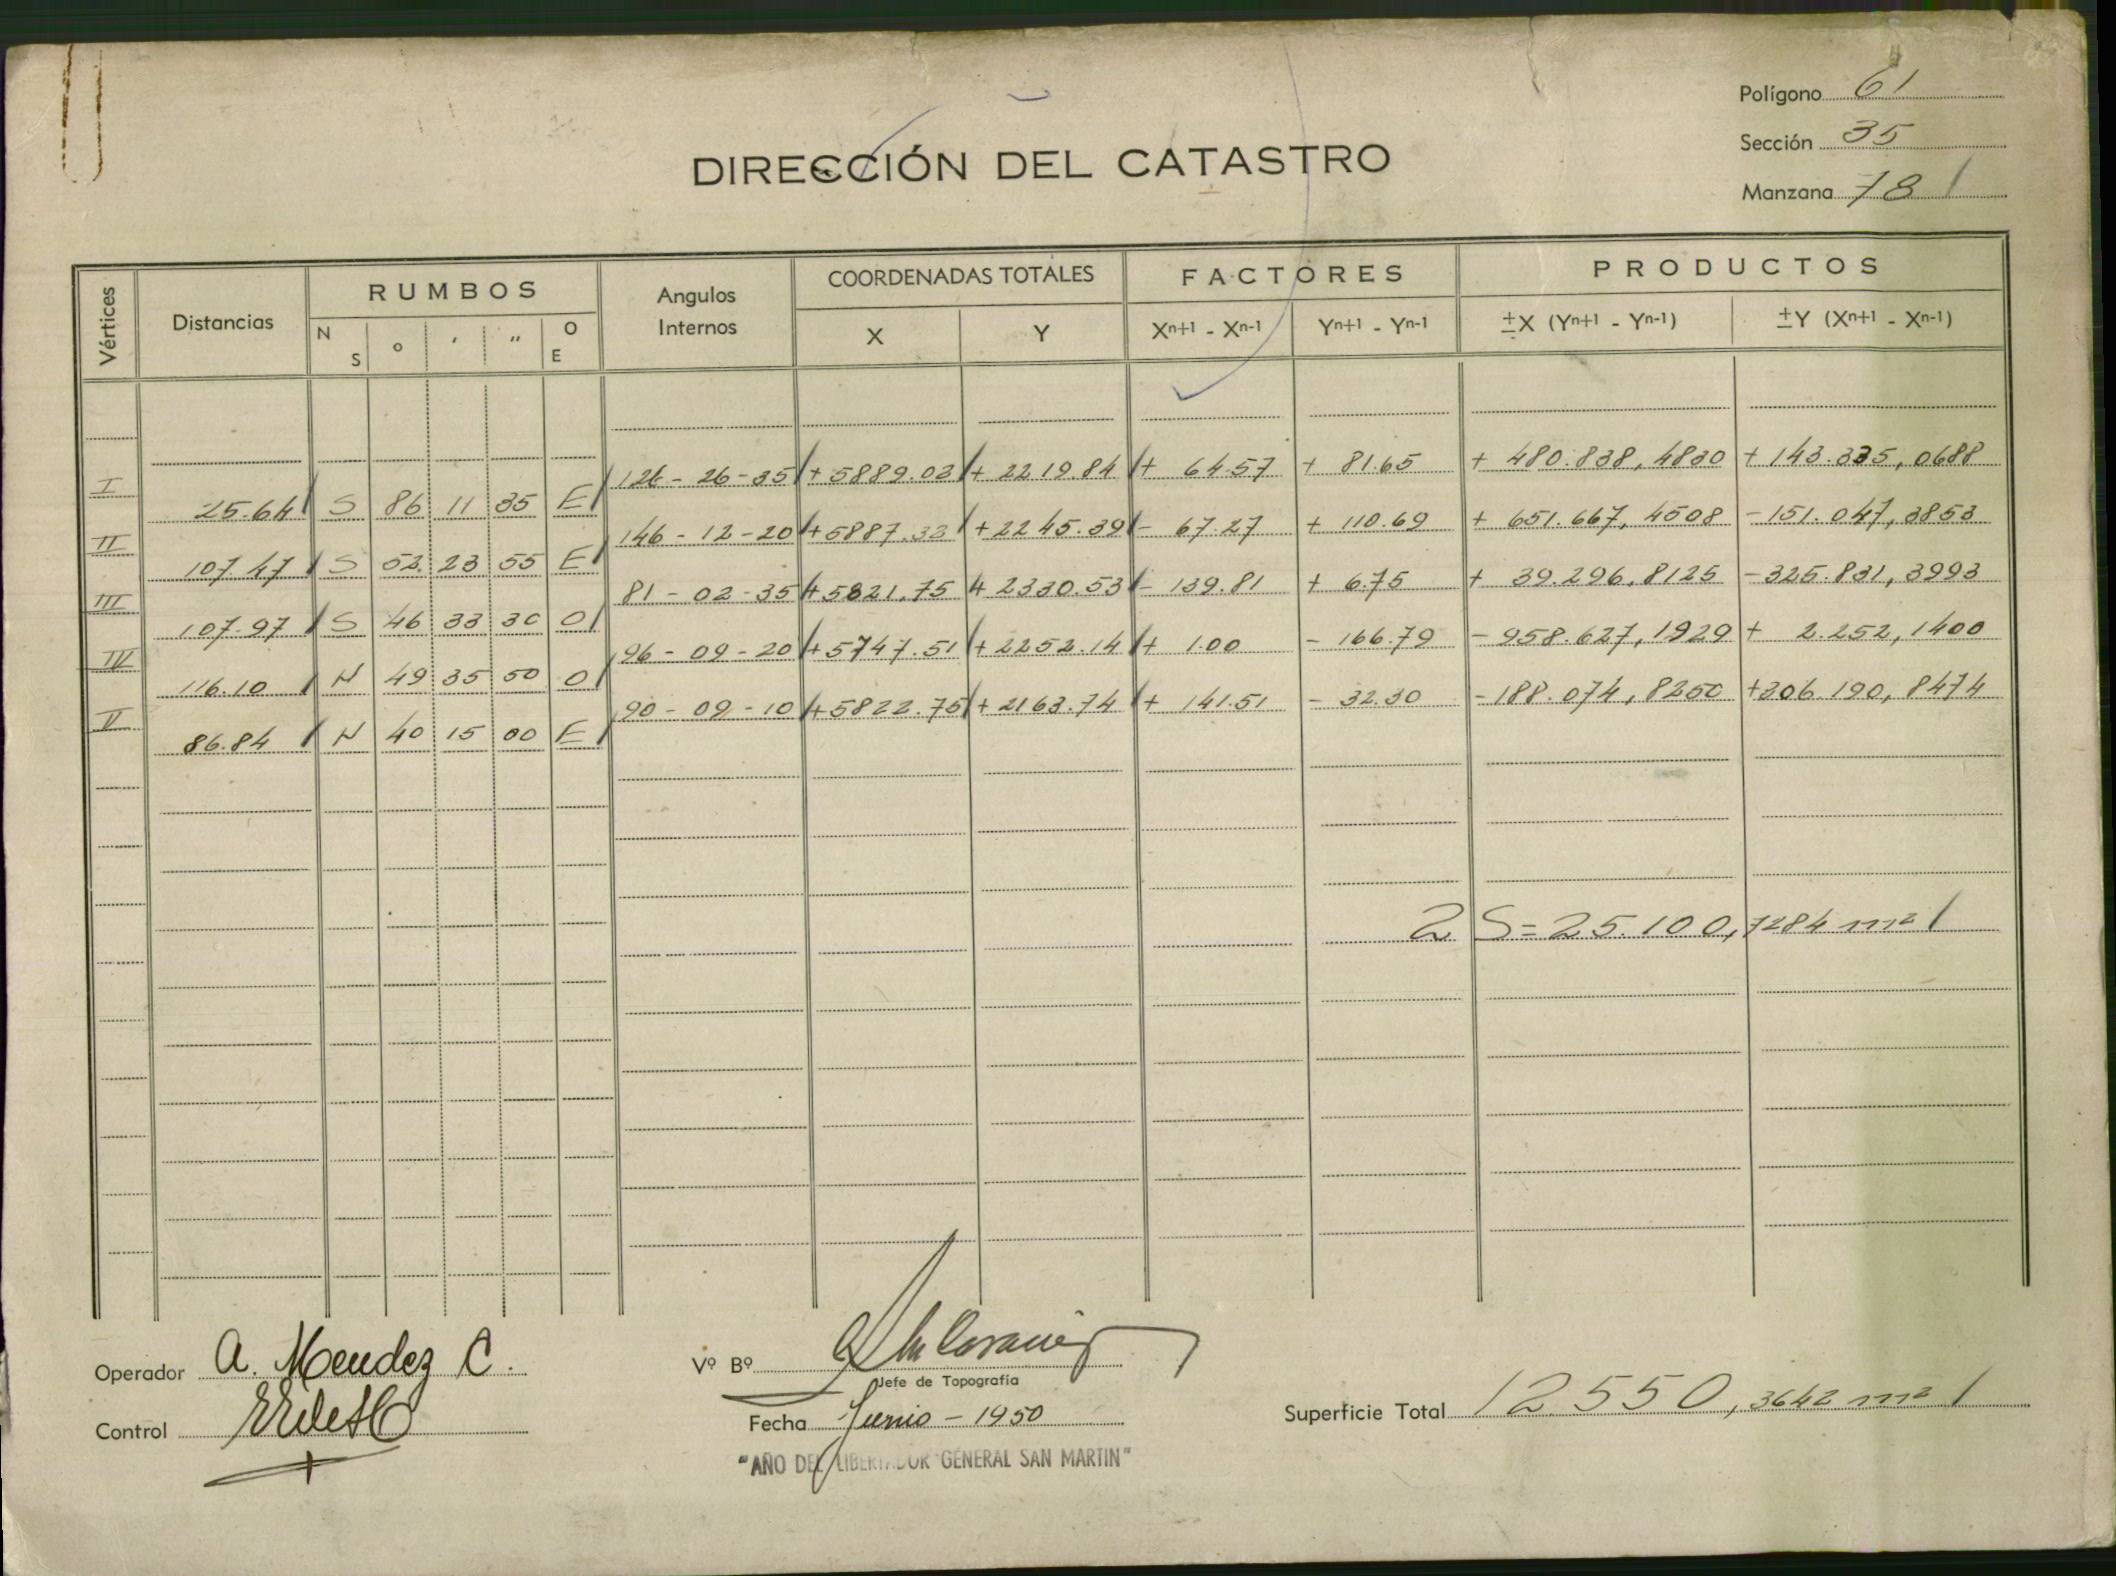 Polígono 61
Sección 35
Manzana 78
DIRECCIÓN DEL CATASTRO
Vértices Distancias RUMBOS Angulos Internos COORDENADAS TOTALES FACTORES PRODUCTOS
N S ° ' " O E X Y Xn+1 - Xn-1 Yn+1 - Yn-1 ±X (Yn+1 - Yn-1) ±Y (Xn+1 - Xn-1)
I 126 - 26 - 35 + 5889.02 + 2219.84 + 64.57 + 81.65 + 480.838,4830 + 143.335,0688
25.64 S 86 11 35 E
II 146 - 12 - 20 + 5887.32 + 2245.39 - 67.27 + 110.69 + 651.667,4508 - 151.047,3853
107.47 S 52 23 55 E
III 81 - 02 - 35 + 5821.75 + 2330.53 - 139.81 + 6.75 + 39.296,8125 - 325.831,3993
107.97 S 46 33 30 O
IV 96 - 09 - 20 + 5747.51 + 2252.14 + 1.00 - 166.79 - 958.627,1929 + 2.252,1400
116.10 N 49 35 50 O
V 90 - 09 - 10 + 5822.75 + 2163.74 + 141.51 - 32.30 - 188.074,8250 + 306.190,8474
86.84 N 40 15 00 E
2 S = 25.100,7284 m²
Operador A. Mendez C.
Control
Vº Bº
Jefe de Topografía
Fecha Junio - 1950
Superficie Total 12.550,3642 m²
"AÑO DEL LIBERTADOR GENERAL SAN MARTIN"